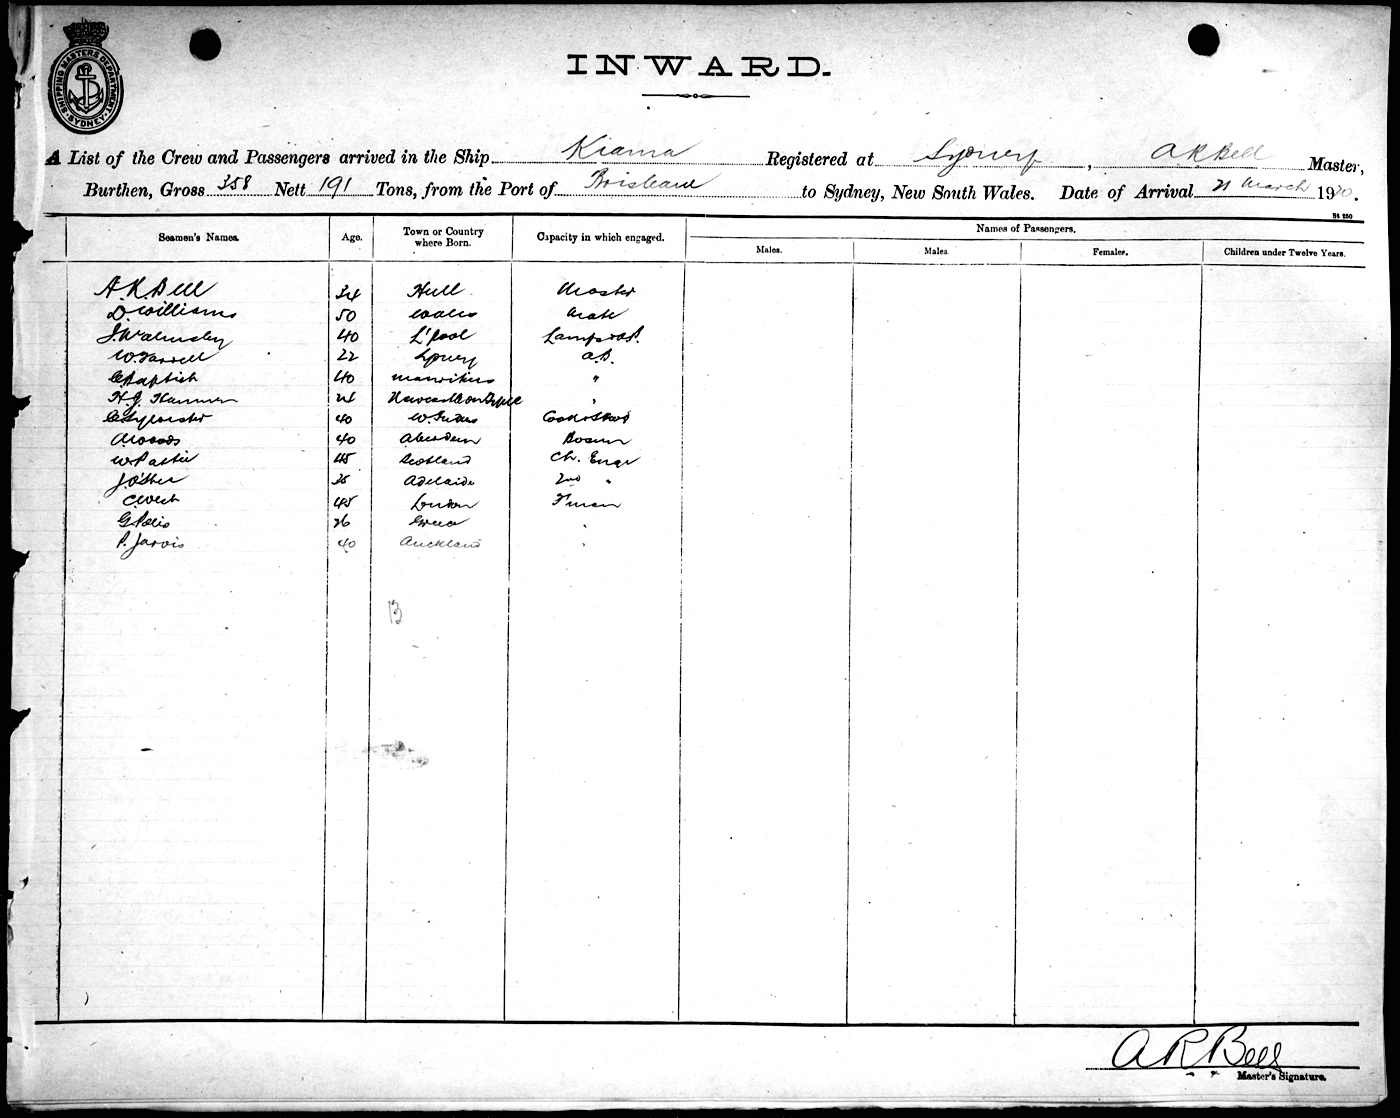 SHIPPING MASTERS DEPARTMENT · SYDNEY ·
INWARD.
A List of the Crew and Passengers arrived in the Ship Kiama Registered at Sydney, A R Bell Master,
Burthen, Gross 358 Nett 191 Tons, from the Port of Brisbane to Sydney, New South Wales. Date of Arrival 21 March 1920.
St 250
Seamen's Names. Age. Town or Country where Born. Capacity in which engaged. Names of Passengers.
Males. Males. Females. Children under Twelve Years.
A.R. Bell 34 Hull Master
D Williams 50 Wales Mate
J. Walmsley 40 L'pool Lamps & A.B.
W. Farrell 22 Sydney A.B.
C Baptist 40 Mauritius "
H.J. Hammer 24 Newcastle on Tyne "
C Sylvester 40 W. Indies Cook & Stwd
A Woods 40 Aberdeen Bosun
W Pattie 45 Scotland Ch. Engr
J O'Shea Adelaide 2nd "
C West 48 London F'man
G Polis 26 Greece "
P. Jarvis 40 Auckland "
13
A R Bell
Master's Signature.